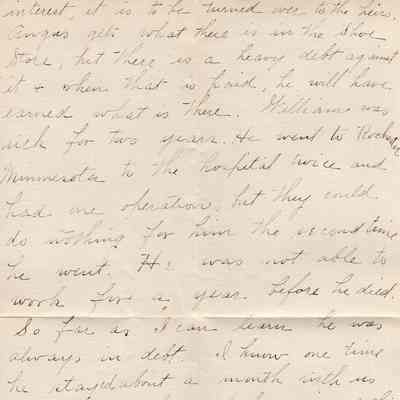 interest, it is to be turned over to the heirs.
Angus gets what there is in the Shoe
Store, but there is a heavy debt against
it & when that is paid, he will have
earned what is there. William was
sick for two years. He went to Rochester
Minnesota to the hospital twice and
had one operation, but they could
do nothing for him the second time
he went. He was not able to
work for a year before he died.
So far as I can learn he was
always in debt. I know one time
he stayed about a month with us